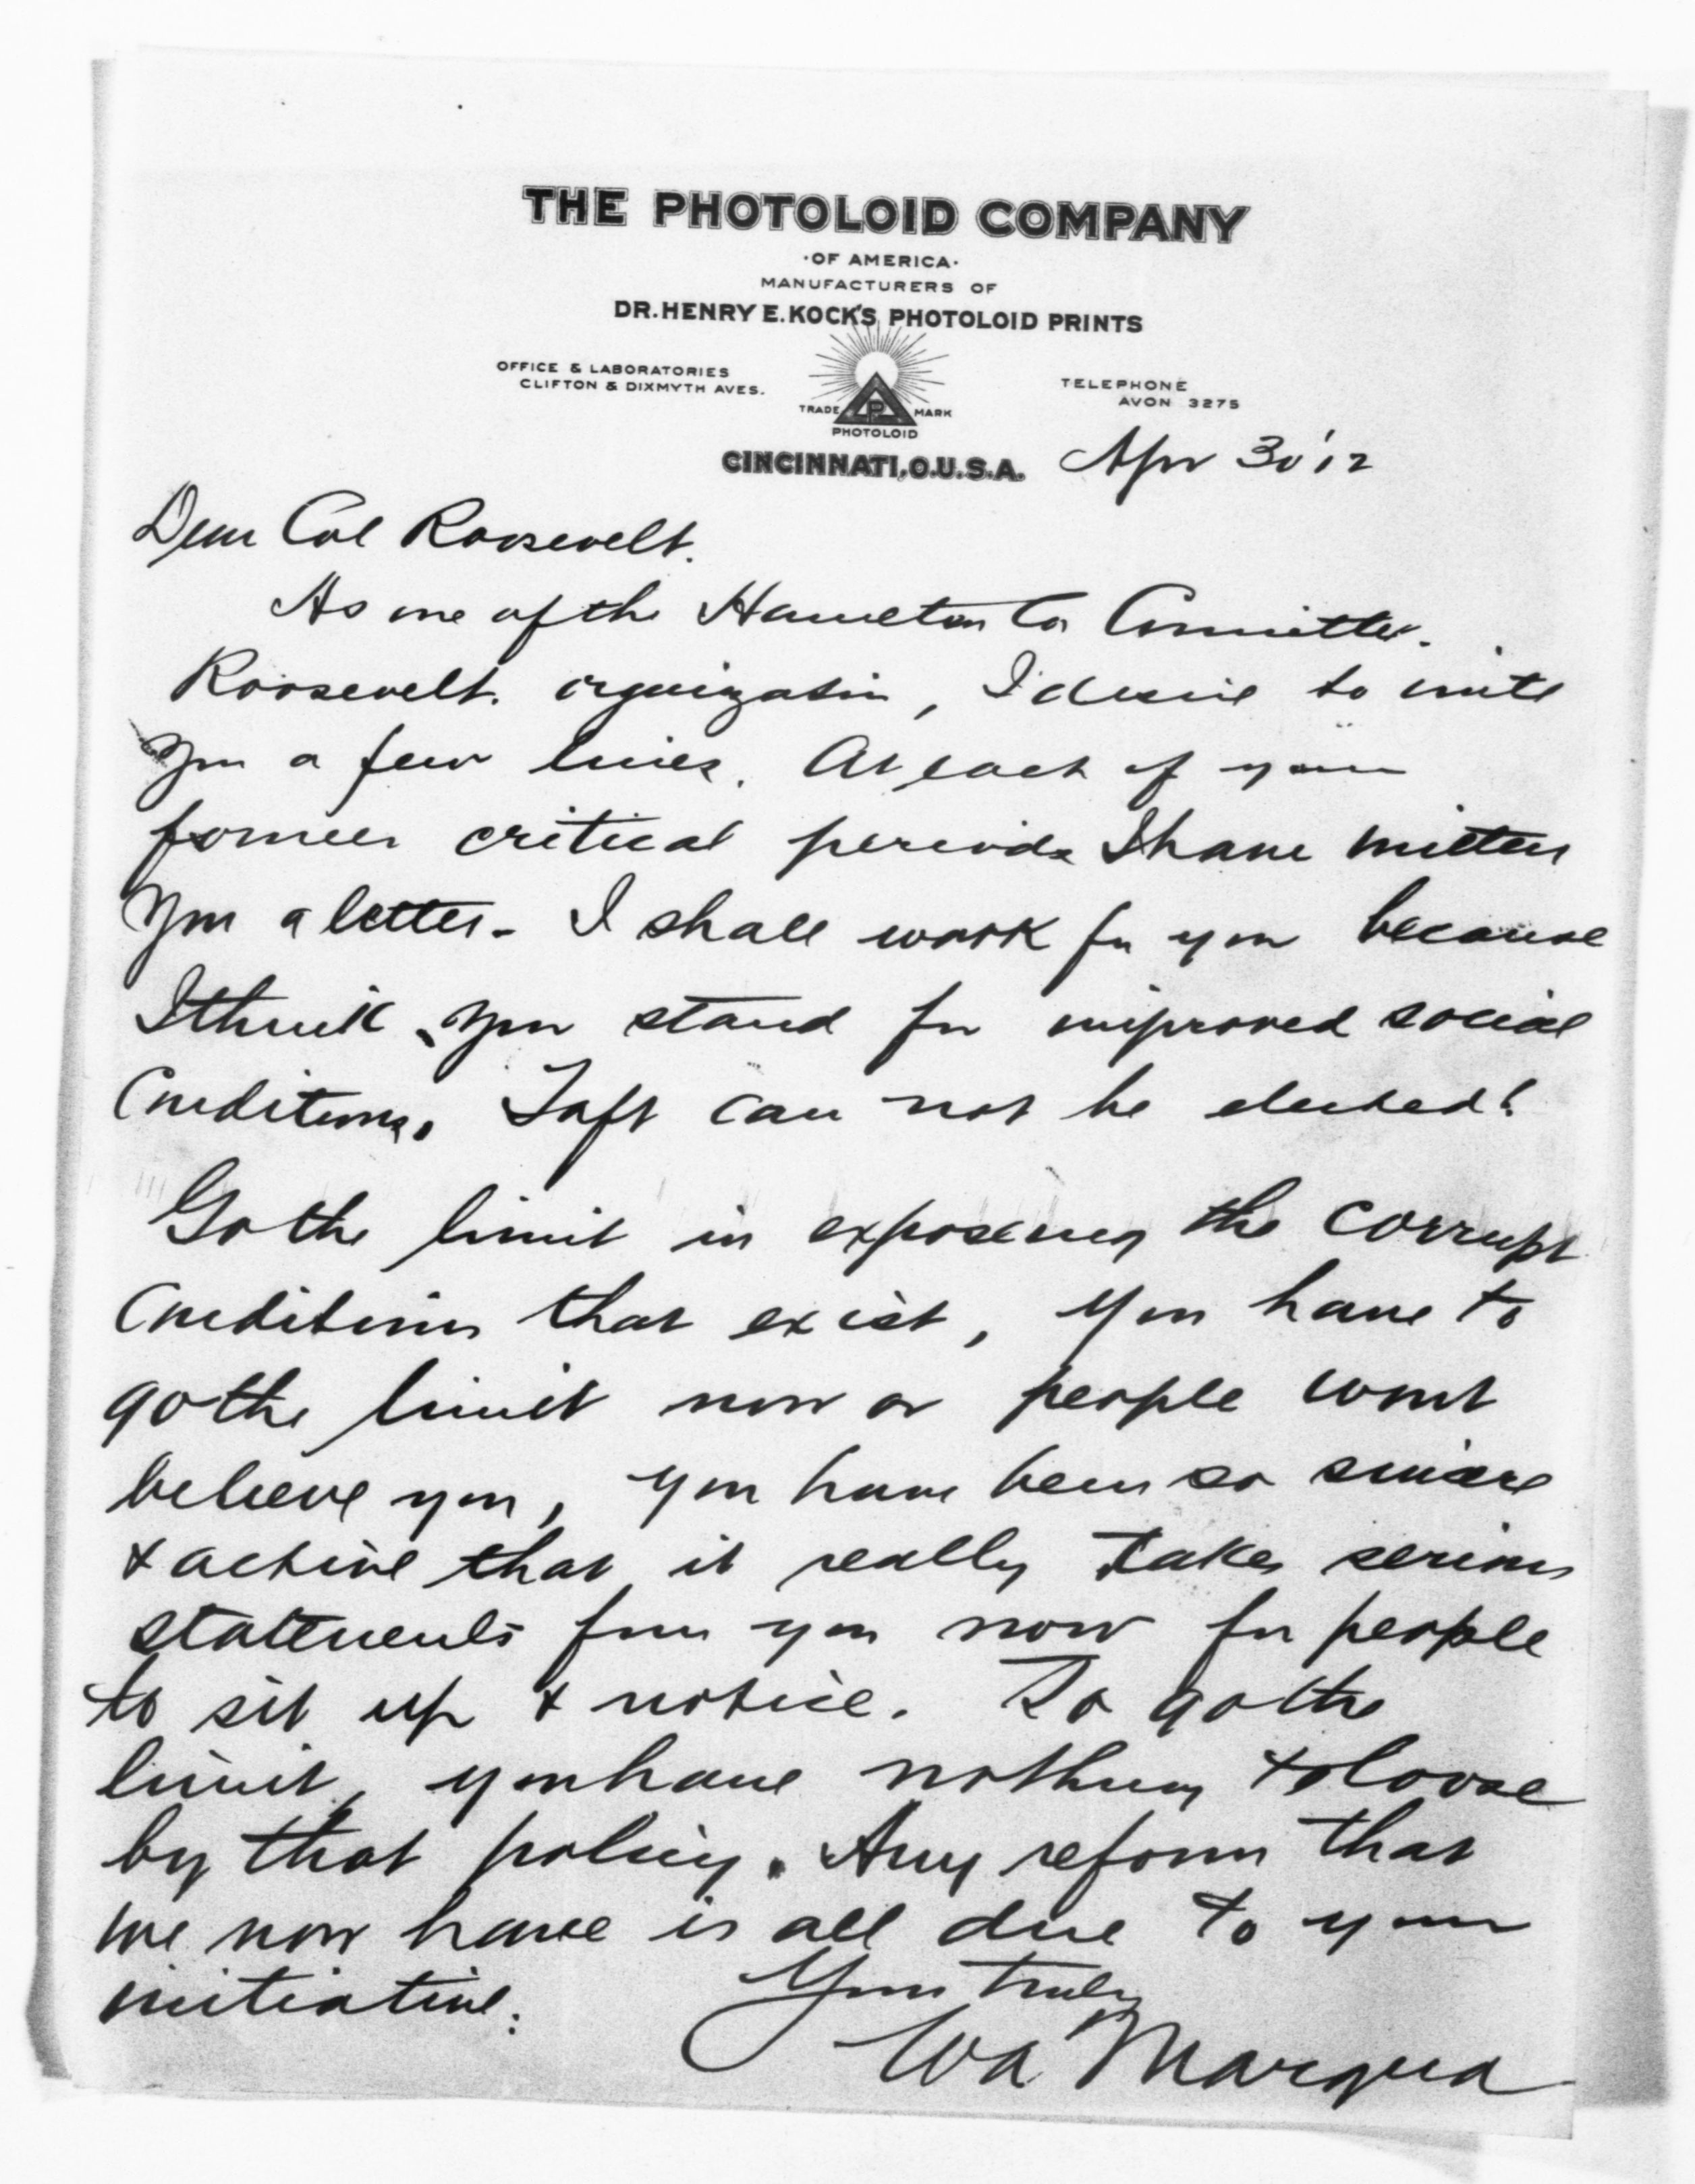 THE PHOTOLOID COMPANY
·OF AMERICA·
MANUFACTURERS OF
DR. HENRY E. KOCK'S PHOTOLOID PRINTS
OFFICE & LABORATORIES
CLIFTON & DIXMYTH AVES.
TRADE MARK
P
PHOTOLOID
TELEPHONE
AVON 3275
CINCINNATI, O. U.S.A. Apr 30 '12
Dear Col Roosevelt.
As one of the Hamilton Co Committee.
Roosevelt. organization, I desire to write
you a few lines. At each of your
former critical periods I have written
you a letter - I shall work for you because
I think you stand for improved social
Conditions. Taft can not be elected!
Go the limit in exposing the corrupt
Conditions that exist, you have to
go the limit now or people wont
believe you, you have been so sincere
& active that it really takes serious
statements from you now for people
to sit up & notice. So go the
limit, you have nothing to loose
by that policy. Any reform that
we now have is all due to your
initiative.
Yours truly
Marqua